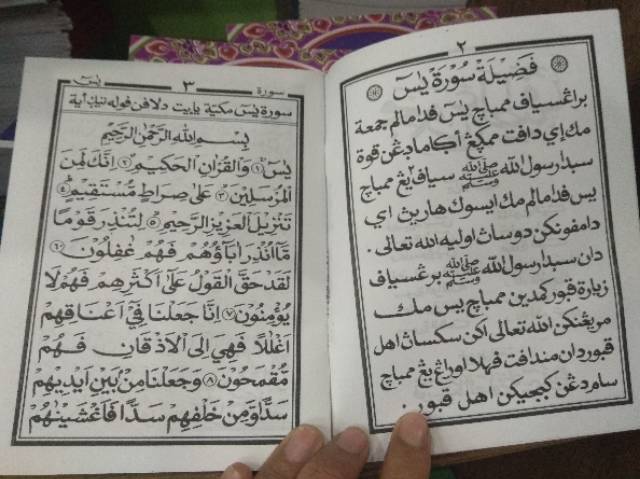 ٢
فَضِيلَة سُوْرَة يٰسٓ
براڠسياف ممباچ يٰسٓ فدامالم جمعة
مك إي دافت ممڬڠ اڬامادڠن قوة
سبدا رسول الله ﷺ سياف٢ يڠ ممباچ
يس فدامالم مك ايسوك هارين اي
دامفونكن دوسان اوليه الله تعالى .
دان سبدا رسول الله ﷺ برڠسياف
زيارة قبور كمدين ممباچ يس مك
مريڠنكن الله تعالى اكن سكسان اهل
قبور دان مندافت فهلا اوراڠ يڠ ممباچ
سام دڠن كبجيكن اهل قبور .
سورة ٣ يٰسٓ
سورة يٰسٓ مكية
بِسْمِ اللهِ الرَّحْمٰنِ الرَّحِيْمِ
يٰسٓ ﴿١﴾ وَالْقُرْاٰنِ الْحَكِيْمِ ﴿٢﴾ اِنَّكَ لَمِنَ
الْمُرْسَلِيْنَ ﴿٣﴾ عَلٰى صِرَاطٍ مُّسْتَقِيْمٍ ﴿٤﴾
تَنْزِيْلَ الْعَزِيْزِ الرَّحِيْمِ ﴿٥﴾ لِتُنْذِرَ قَوْمًا
مَّآ اُنْذِرَ اٰبَآؤُهُمْ فَهُمْ غٰفِلُوْنَ ﴿٦﴾
لَقَدْ حَقَّ الْقَوْلُ عَلٰٓى اَكْثَرِهِمْ فَهُمْ لَا
يُؤْمِنُوْنَ ﴿٧﴾ اِنَّا جَعَلْنَا فِيْٓ اَعْنَاقِهِمْ
اَغْلٰلًا فَهِيَ اِلَى الْاَذْقَانِ فَهُمْ
مُّقْمَحُوْنَ ﴿٨﴾ وَجَعَلْنَا مِنْۢ بَيْنِ اَيْدِيْهِمْ
سَدًّا وَّمِنْ خَلْفِهِمْ سَدًّا فَاَغْشَيْنٰهُمْ